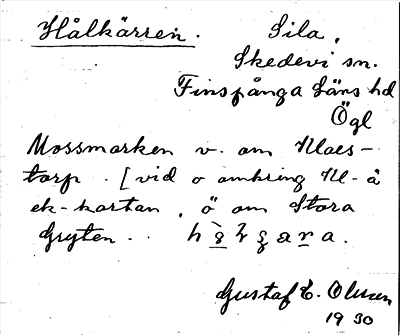 Hålkärren. Sila,
Skedevi sn.
Finspånga läns hd
Ögl
Mossmarken v. om Klaes-
torp. [vid o omkring Kl-å
ek-kartan, ö om Stora
Gryten.. h a r a.
Gustaf E. Olsson
1930